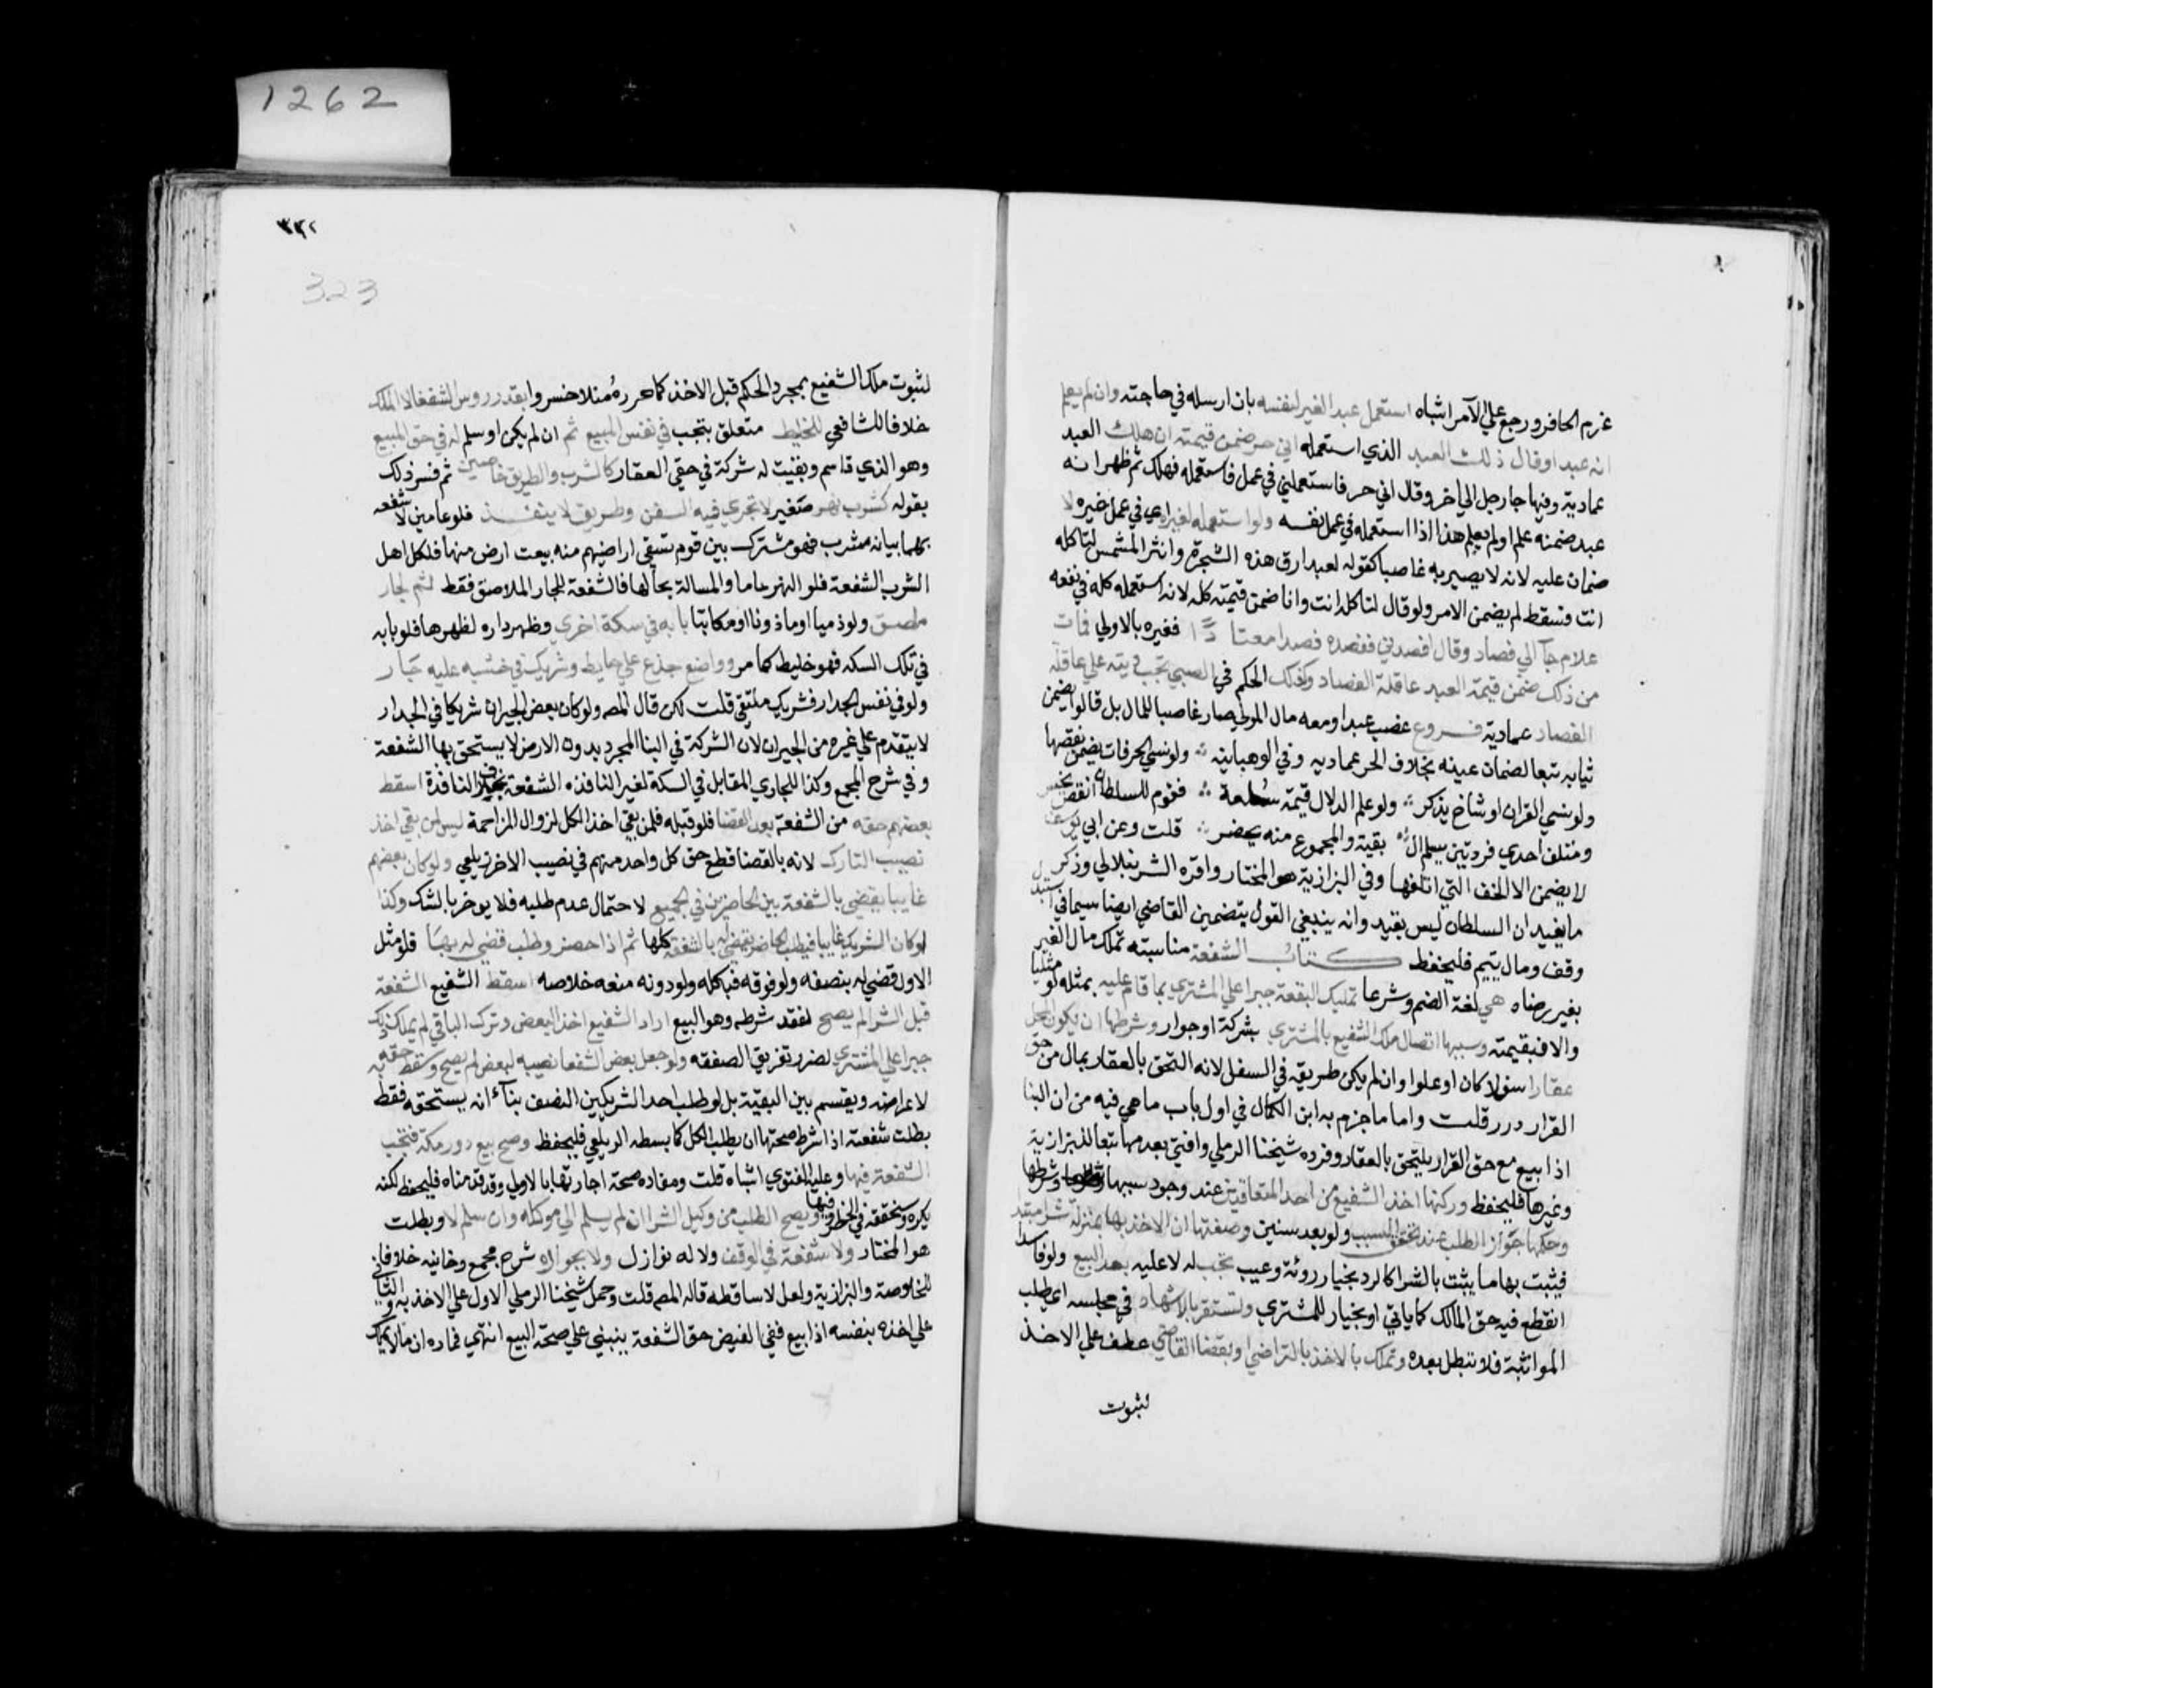 1262
غرم الحافر ورجع علي الآمر اشباه استعمل عبد الغير لنفسه بان ارسله في حاجته وان لم يعلم
انه عبد او قال ذلك العبد الذي استعمله اني حر ضمن قيمته ان هلك العبد
عمادية وفيها جا رجل الي اخر وقال اني حر فاستعملني في عمل فاستعمله فهلك ثم ظهر انه
عبد ضمنه علم او لم يعلم هذا اذا استعمله في عمل نفسه ولو استعمله لغيره اي في عمل غيره لا
ضمان عليه لانه لا يصير به غاصبا كقوله لعبد ارق هذه الشجرة وانثر المشمش لتاكله
انت فسقط لم يضمن الامر ولو قال لتاكله انت وانا ضمن قيمته كله لانه استعمله كله في نفعه
غلام جآ الي فصاد وقال افصدني ففصده فصدا معتادا فغيره بالاولي فمات
من ذلك ضمن قيمة العبد عاقلة الفصاد وكذلك الحكم في الصبي تجب ديته علي عاقلة
الفصاد عمادية فروع غصب عبدا ومعه مال المولي صار غاصبا للمال بل قالوا يضمن
ثيابه تبعا لضمان عينه بخلاف الحر عماديه وفي الوهبانيه ولو نسي الحرفات يضمن نقصها
ولو نسي القران او شاخ يذكر ولو علم الدلال قيمة سلعة فقوم للسلطان انقص يخسر
ومتلف احدي فردتين يسلم ال بقية والمجموع منه يحضر قلت وعن ابي يوسف
لا يضمن الا الخف التي اتلفها وفي البزازية هو المختار واقره الشرنبلالي وذكر
ما يفيد ان السلطان ليس بقيد وانه ينبغي القول بتضمين القاضي ايضا سيما في استبدال
وقف ومال يتيم فليحفظ كتاب الشفعة مناسبته تملك مال الغير
بغير رضاه هي لغة الضم وشرعا تمليك البقعة جبرا علي المشتري بما قام عليه بمثله لو مثليا
والا فبقيمته وسببها اتصال ملك الشفيع بالمشتري بشركة او جوار وشرطها ان يكون المحل
عقارا سفلا كان او علوا وان لم يكن طريقه في السفل لانه التحق بالعقار بماله من حق
القرار درر قلت واما ما جزم به ابن الكمال في اول باب ما هي فيه من ان البنا
اذا بيع مع حق القرار يلتحق بالعقار فرده شيخنا الرملي وافتي بعدمها تبعا للبزازية
وغيرها فليحفظ وركنها اخذ الشفيع من احد المتعاقدين عند وجود سببها وشرطها
وحكمها جواز الطلب عند تحقق السبب ولو بعد سنين وصفتها ان الاخذ بها بمنزلة شرا مبتدا
فيثبت بها ما يثبت بالشرا كالرد بخيار روئة وعيب تجب له لا عليه بعد البيع ولو فاسدا
انقطع فيه حق المالك كما ياتي او بخيار للمشتري وتستقر بالاشهاد في مجلسه اي طلب
المواثبة فلا تبطل بعده وتملك بالاخذ بالتراضي او بقضا القاضي عطف علي الاخذ
لثبوت
323
لثبوت ملك الشفيع بمجرد الحكم قبل الاخذ كما حرره منلا خسروا بقدر روس الشفعا لا الملك
خلافا للشافعي للخليط متعلق بتجب في نفس المبيع ثم ان لم يكن او سلم له في حق المبيع
وهو الذي قاسم وبقيت له شركة في حقي العقار كالشرب والطريق خاصين ثم فسر ذلك
بقوله كشرب نهر صغير لا تجري فيه السفن وطريق لا ينفذ فلو عامين لا شفعه
بهما بيانه شرب فهو مشترك بين قوم تسقي اراضيهم منه بيعت ارض منها فلكل اهل
الشرب الشفعة فلو النهر عاما والمسالة بحالها فالشفعة للجار الملاصق فقط ثم لجار
ملاصق ولو ذميا او ماذونا او مكاتبا بابه في سكة اخري وظهر داره لظهرها فلو بابه
في تلك السكه فهو خليط كما مر وواضع جذع علي حايط وشريك في خشبه عليه جار
ولو في نفس الجدار فشريك ملتقي قلت لكن قال المصـ ولو كان بعض الجيران شريكا في الجدار
لا يتقدم علي غيره من الجيران لان الشركة في البنا المجرد بدون الارض لا يستحق بها الشفعة
وفي شرح المجمع وكذا للجاري المقابل في السكة الغير النافذه الشفعة بخلاف النافذة اسقط
بعضهم حقه من الشفعة بعد القضا فلو قبله فلمن بقي اخذ الكل لزوال المزاحمة ليس لمن بقي اخذ
نصيب التارك لانه بالقضا قطع حق كل واحد منهم في نصيب الاخر زيلعي ولو كان بعضهم
غايبا يقضي بالشفعة بين الحاضرين في الجميع لاحتمال عدم طلبه فلا يوخر بالشك وكذا
لو كان الشريك غايبا فيطلب الحاضر يقضي له بالشفعة كلها ثم اذا حضر وطلب قضي له بها فلو مثل
الاول قضي له بنصفه ولو فوقه فبكله ولو دونه منعه خلاصه اسقط الشفيع الشفعة
قبل الشرا لم يصح لفقد شرطه وهو البيع اراد الشفيع اخذ البعض وترك الباقي لم يملك ذلك
جبرا علي المشتري لضرر تفريق الصفقه ولو جعل بعض الشفعا نصيبه لبعض لم يصح وسقط حقه به
لاعراضه ويقسم بين البقية بل لو طلب احد الشريكين النصف بنآء انه يستحقه فقط
بطلت شفعته اذ شرط صحتها ان يطلب الكل كما بسطه الزيلعي فليحفظ وصح بيع دور مكة فتجب
الشفعة فيها وعليه الفتوي اشباه قلت ومفاده صحة اجارتها بالاولي وقد قدمناه فليحفظ لكنه
يكره وسنحققه في الحظر وفيها ويصح الطلب من وكيل الشرا ان لم يسلم الي موكله وان سلم لا وبطلت
هو المختار ولا شفعة في الوقف ولا له نوازل ولا بجواره شرح مجمع وخانيه خلافا في
للخلاصة والبزازية ولعل لا ساقطه قاله المصـ قلت وحمل شيخنا الرملي الاول علي الاخذ به والثاني
علي اخذه بنفسه اذا بيع ففي الفيض حق الشفعة ينبني علي صحة البيع انتهي فمفاده ان ما لا يملك